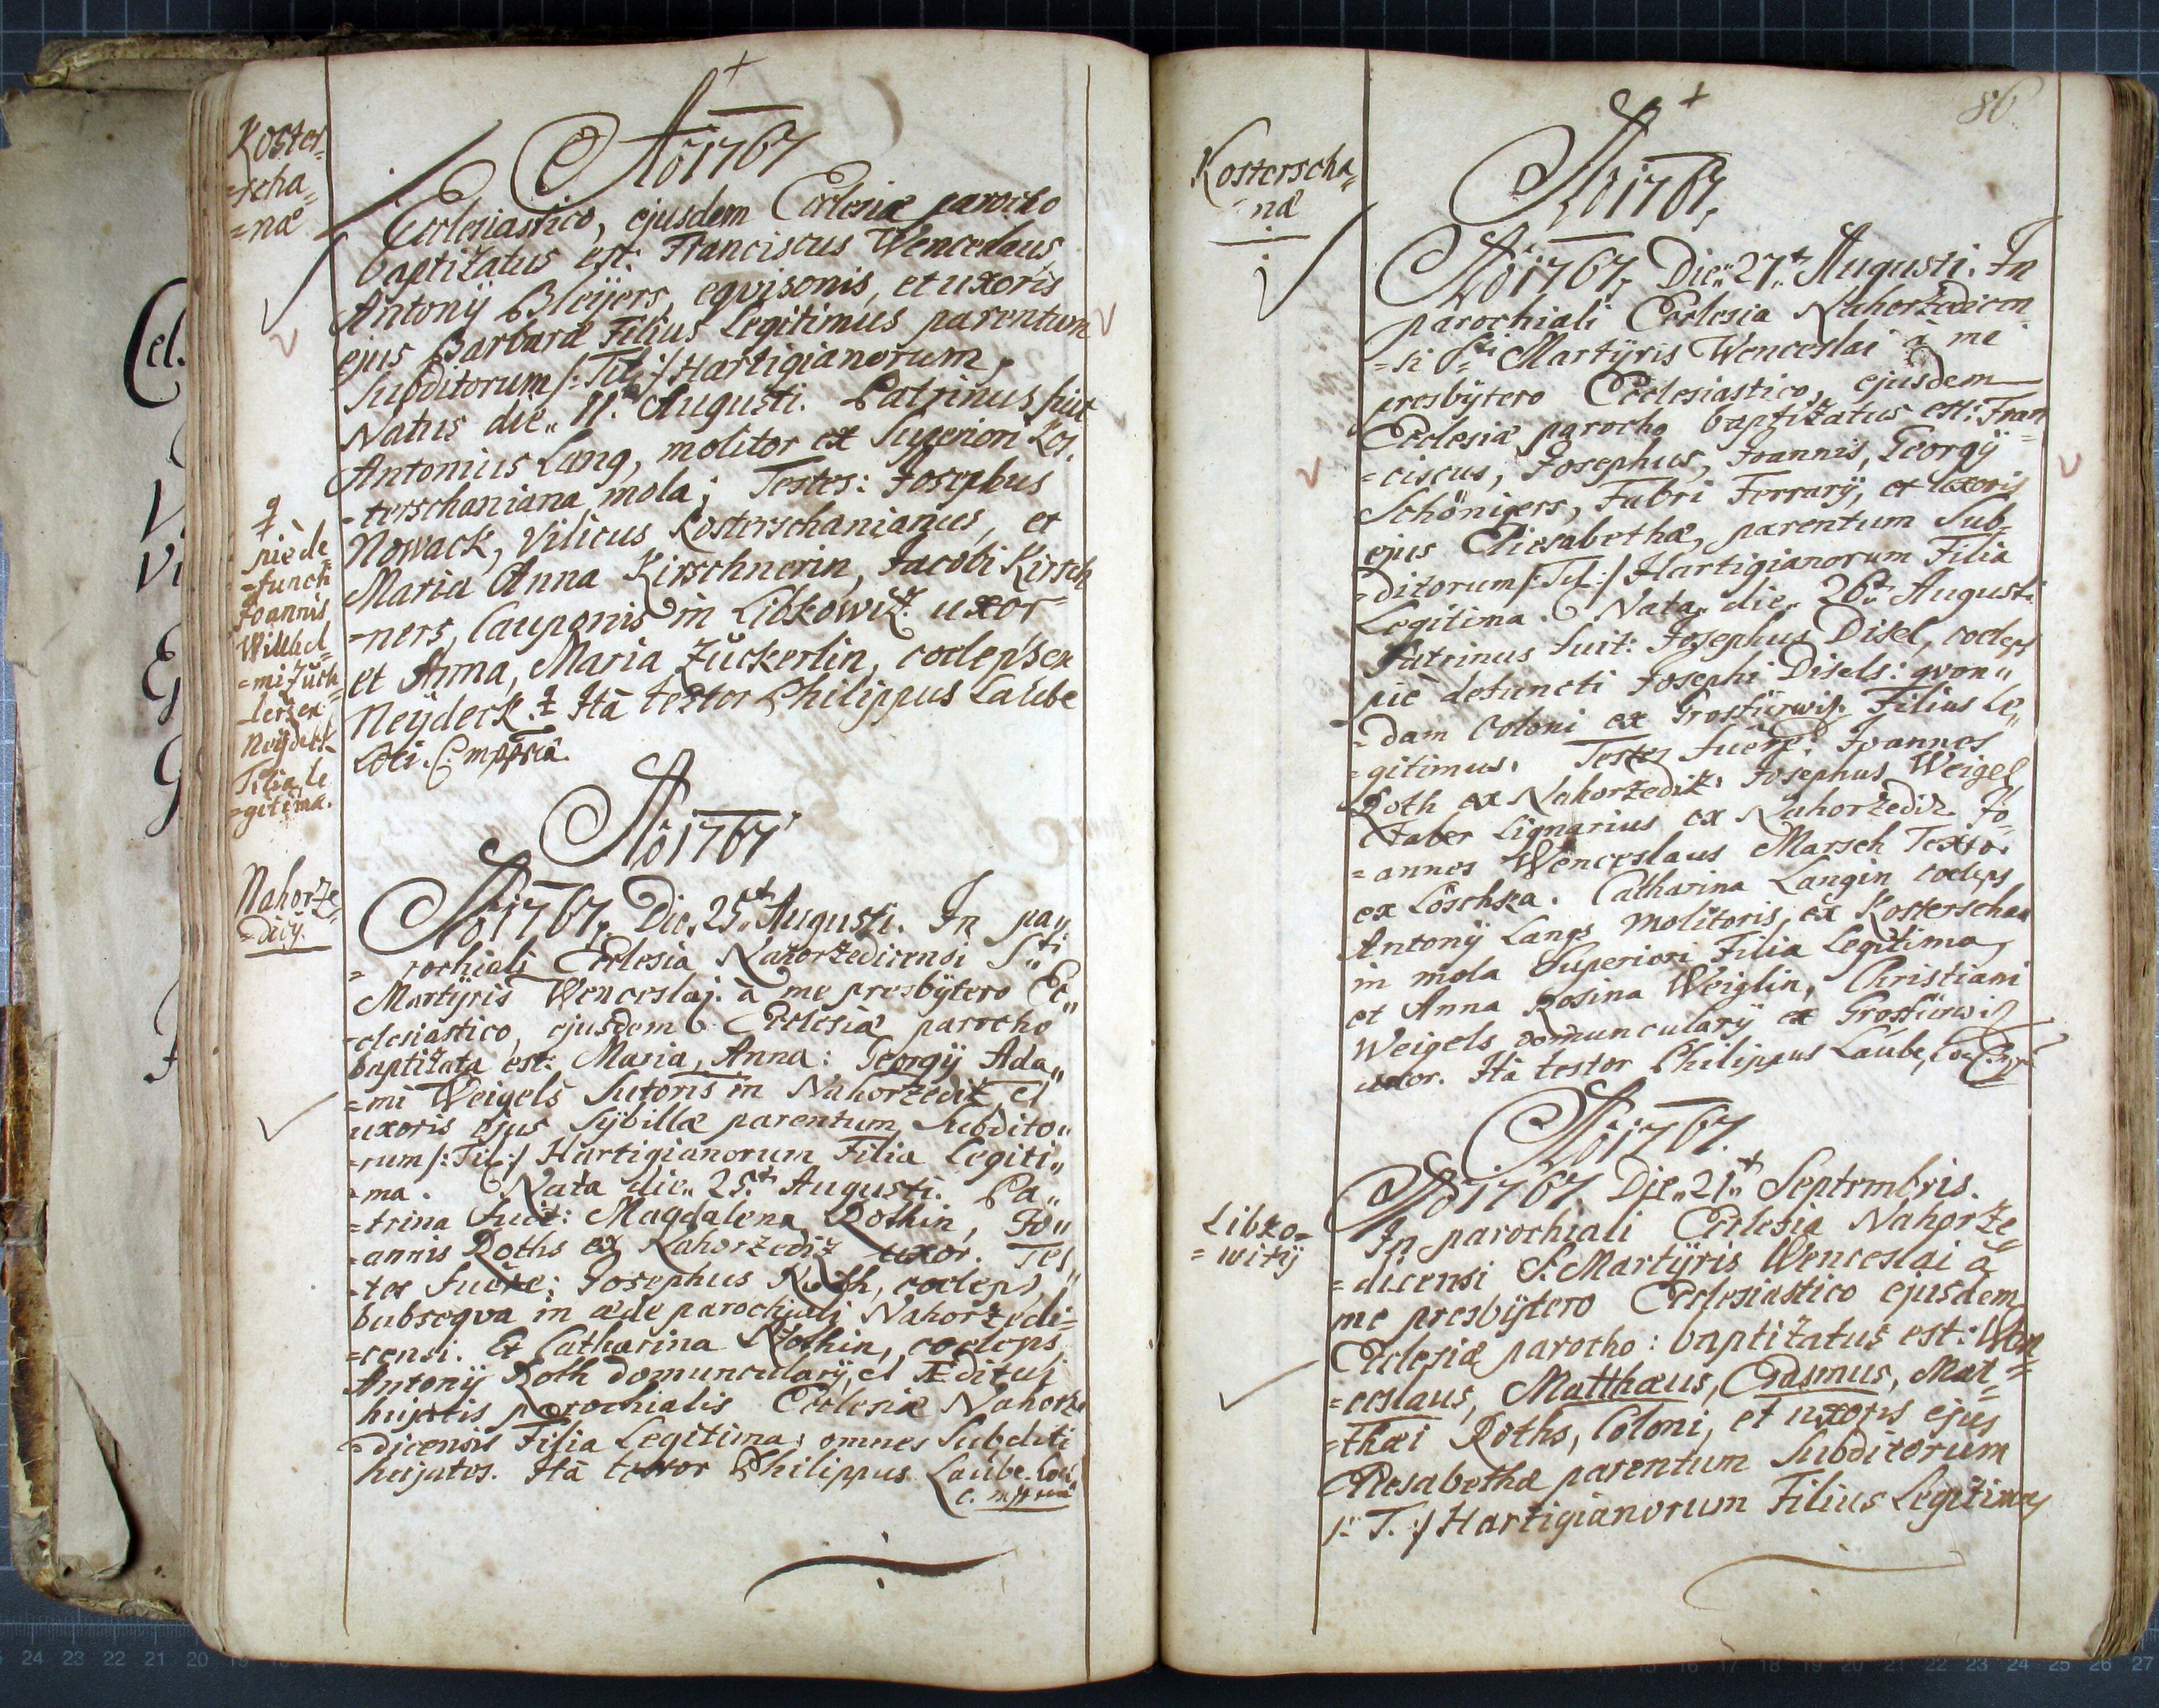 Koster=
=scha=
=næ
Aô 1767
Ecclesiastico, ejusdem Ecclesiæ parocho
baptizatus est: Franciscus Wenceslaus,
Antonÿ Bleÿers, eqvisonis, et uxoris
ejus Barbaræ Filius Legitimus parentum
Subditorum /: Tit :/ Hartigianorum,
Natus die„ 11. Augusti. Patrinus fuit
Antonius Lang, molitor ex Superiori Kos„
=terschaniana mola; Testes: Josephus
Nowack, Vilicus Kosterschanianus, et
Maria Anna Kirschnerin, Jacobi Kirsch
=ners, Cauponis in Libkowitz uxor
et Anna, Maria Zückerlin, coeleps ex
Neÿdeck. Ità testor Philippus Laube
Loci C. mppria.
piè de
=functi
Joannis
Wilhel=
=mi Zück=
=lers ex
Neÿdeck
Filia le
=gitima.
Nahorze=
=dicÿ.
Aô 1767
Aô 1767, Die„ 25t Augusti. In pa„
=rochiali Ecclesia Nahorzedicensi S„ti
Martÿris Wenceslaj. à me presbÿtero Ec„
=clesiastico, ejusdem Ecclesiæ parocho
baptizata est: Maria, Anna: Georgÿ Ada„
=mi Weigels Sutoris in Nahorzeditz et
uxoris ejus Sÿbillæ parentum Subdito„
=rum /: Tit :/ Hartigianorum Filia Legiti„
=ma. Nata die„ 25t Augusti. Pa„
=trina fuit: Magdalena Rothin, Jo„
=annis Roths ex Nahorzediz uxor. Tes„
=tes fuêre: Josephus Roth, coeleps,
bubseqva in æde parochiali Nahorzedi=
=censi. Et Catharina Rothin, coeleps
Antonÿ Roth domuncularÿ, et Æditui
hujatis parochialis Ecclesiæ Nahorze
=dicensis Filia Legitima: omnes Subditi
hujates. Ità testor Philippus Laube. Loci
C. mppria
86
Kosterscha=
næ
Aô 1767,
Aô 1767, Die„ 27t Augusti. In
parochiali Ecclesia Nahorzedicen
=si Sti Martÿris Wenceslai à me
presbÿtero Ecclesiastico, ejusdem
Ecclesiæ parocho baptizatus est: Fran
=ciscus, Josephus, Joannis, Georgÿ
Schönigers, Fabri Ferrarÿ, et uxoris
ejus Eliesabethæ, parentum Sub=
=ditorum /: Tit :/ Hartigianorum Filia
Legitima. Nata die„ 26t Augusti
Patrinus fuit: Josephus Disel, coeleps
piè defuncti Josephi Disels: qvon„
=dam Coloni ex Grosfürwiz Filius Le„
=gitimus. Testes fuêre: Joannes
Roth ex Nahorzeditz. Josephus Weigel
Faber Lignarius ex Nahorzediz. Jo=
=annes Wenceslaus Marsch Textor
ex Löschka. Catharina Langin coeleps
Antonÿ Langs molitoris, ex Kosterschan
in mola Superiori Filia Legitima,
et Anna Rosina Weiglin, Christiani
Weigels domuncularÿ ex Grosfürwiz
uxor. Ità testor Philippus Laube, Loc. C. mp
Libko=
=witzÿ
Aô 1767.
Aô 1767. Die„ 21t Septembris.
In parochiali Ecclesia Nahorze=
=dicensi S. Martÿris Wenceslai à
me presbÿtero Ecclesiastico ejusdem
Ecclesiæ parocho: baptizatus est: Wen
=ceslaus, Matthæus, Erasmus, Mat=
=thæi Roths, Coloni, et uxoris ejus
Eliesabethæ parentum Subditorum
/: T. :/ Hartigianorum Filius Legitimus